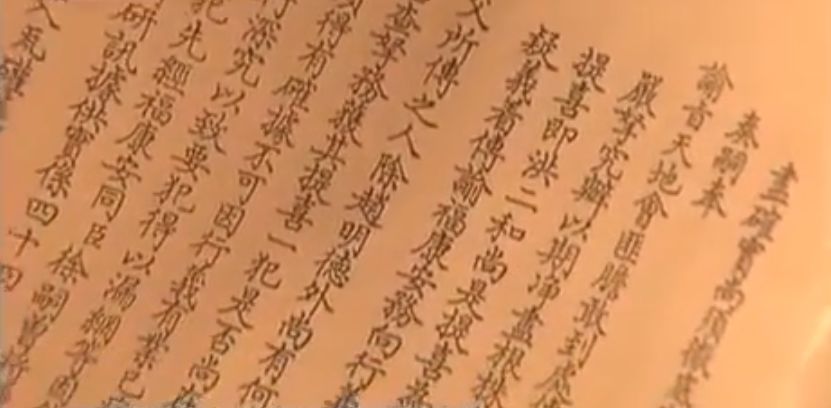 盡確實尚須徹底
奏嗣奉
諭旨天地會匪膽敢到處
嚴拏究辦以期淨盡根株
提喜即洪二和尚是提喜
疑義著傳諭福康安務向行義
父所傳之人除趙明德外尚有何
查拏務獲其提喜一犯是否尚
得有確據不可因行義有業已
行深究以致要犯得以漏網等因
犯先經福康安同臣徐嗣曾
研訊據供實係四十四